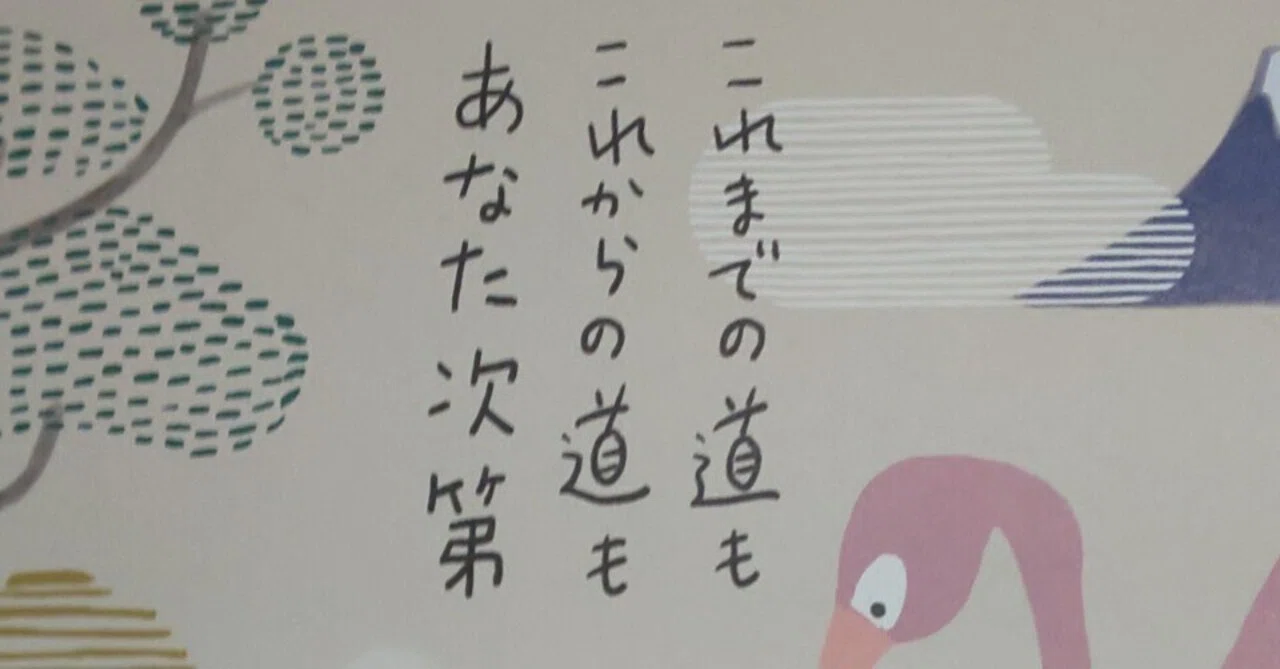 これまでの道も
これからの道も
あなた次第